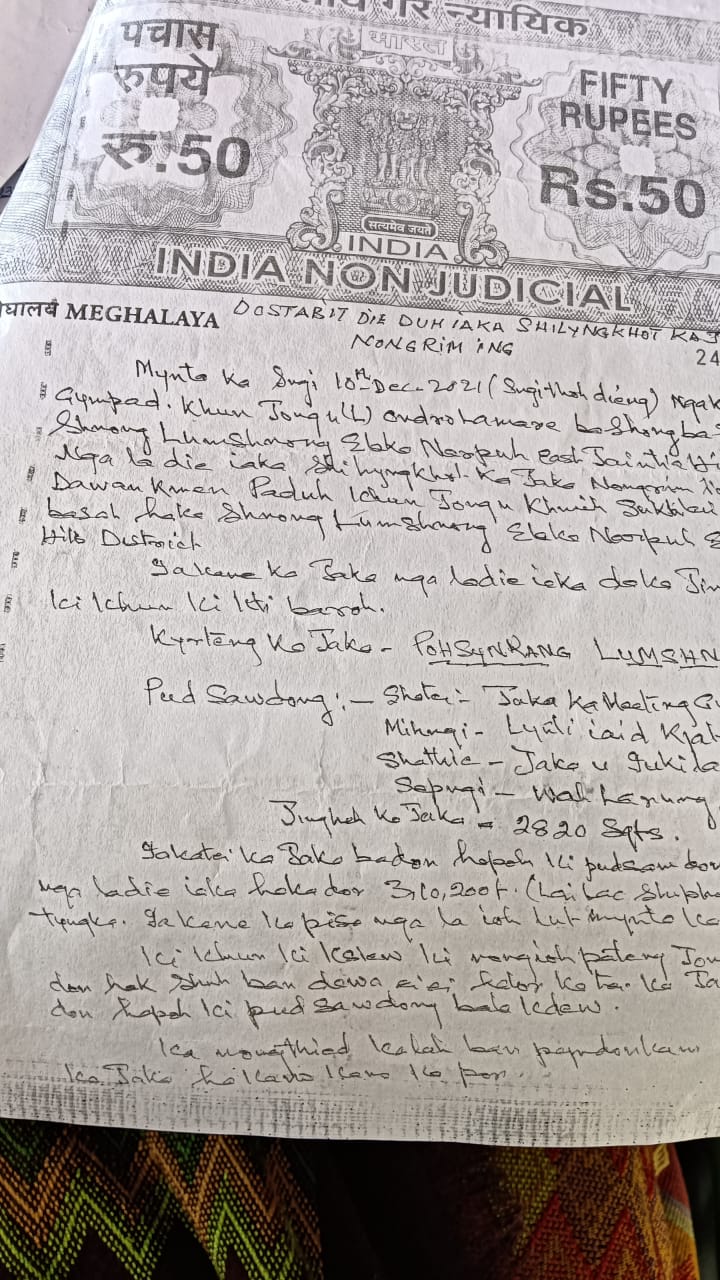 गैर न्यायिक
पचास
रुपये
रु.50
भारत
FIFTY
RUPEES
Rs.50
सत्यमेव जयते
INDIA
INDIA NON JUDICIAL
MEGHALAYA
DOSTABIT DIE DUH IAKA SHILYNGKHOT KA J
NONGRIM ING
24
Mynta Ka Sngi 10th Dec. 2021 (Sngi thoh dieng) Ngak
Gympad. Khun Jongu (L)
Shnong Lumshnong Elaka Narpuh East Jaintia Hi
Nga la die iaka Shilyngkhot Ka Jaka Nongrim
Dawan Kmen Paduh Khun Jongu
basah haka Shnong Lumshnong Elaka Narpuh E
Hills District
Ia kane ka Jaka nga la die ieka
ki khun ki kti baroh.
Kyrteng Ka Jaka - POHSYNRANG LUMSHN
Pud Sawdong :- Shatei - Jaka Ka Meeting
Mihngi - Lynti iaid Kjat
Shathie - Jaka u
Sepngi - Wah
Jingheh Ka Jaka = 2820 Sqts.
Ia kata ka Jaka ba don hapoh ki pud sawdon
nga la die iaka haka dor 3,10,200/-. (Lai Lac Shiphe
tyngka. Ia kane ka pisa nga la ioh lut mynta ka
ki khun ki ki nongioh pateng Jon
don hak shuh ban dawa ei ei halor kata ka Ja
don hapoh ki pud sawdong bala kdew.
Ka nongthied kalah ban pyndonkam
ka Jaka ha kano kano ka por.